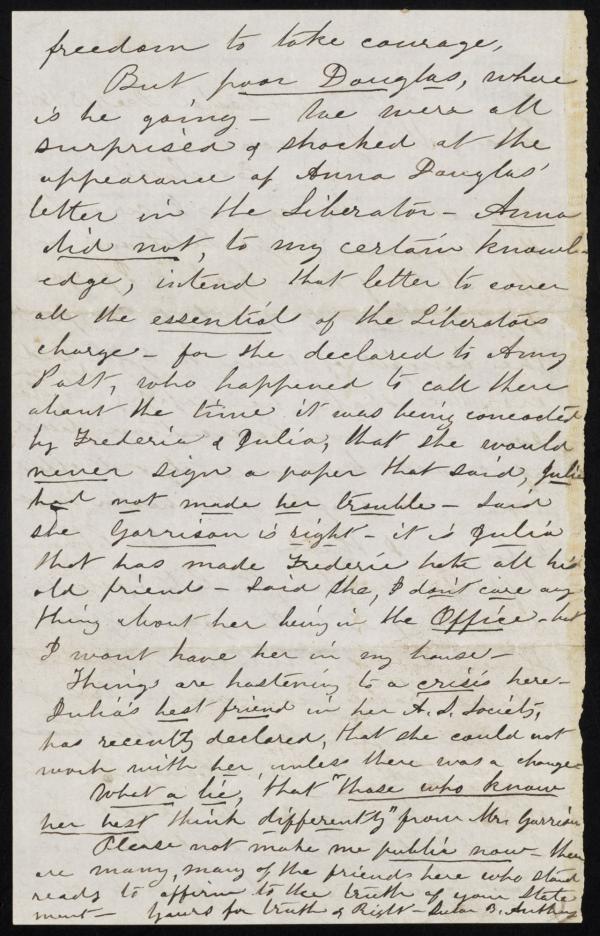 freedom to take courage,
But poor Douglas, where
is he going – We were all
surprised & shocked at the
appearance of Anna Douglas'
letter in the Liberator – Anna
did not, to my certain knowl-
edge, intend that letter to cover
all the essential of the Liberators
charge – for she declared to Amy
Post, who happened to call there
about the time it was being concocted
by Frederic & Julia, that she would
never sign a paper that said, Julia
had not made her trouble – Said
she Garrison is right – it is Julia
that has made Frederic hate all his
old friends – Said she, I don't care any
thing about her being in the Office – but
I wont have her in my house –
Things are hastening to a crisis here –
Julia's best friend in her A. S. Society,
has recently declared, that she could not
work with her, unless there was a change –
What a lie, that "those who know
her best think differently" from Mr. Garrison
Please not make me public now – there
are many, many of the friends here who stand
ready to affirm to the truth of your State
ment – Yours for truth & Right – Susan B. Anthony